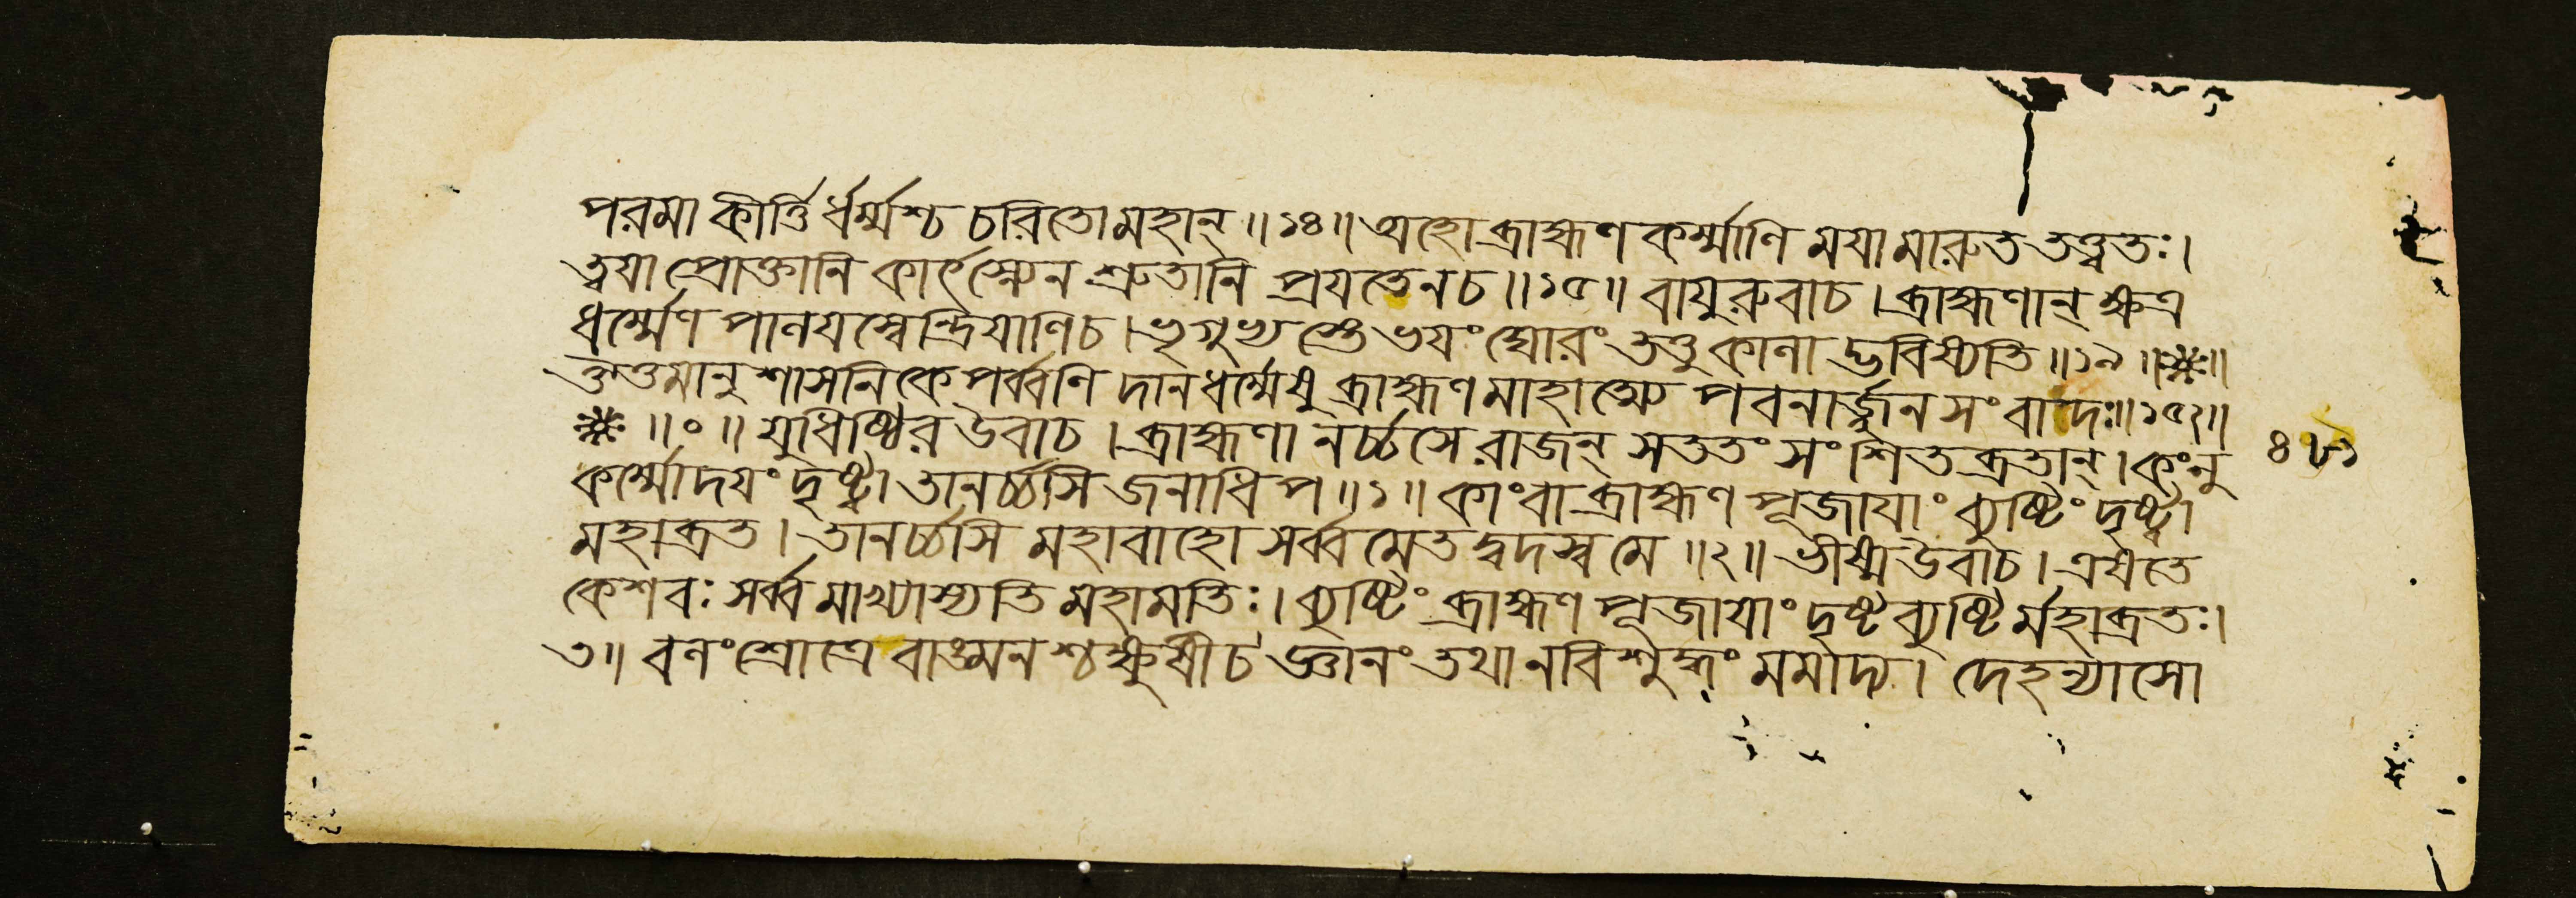 পরমা কীর্ত্তির্ধর্ম্মশ্চ চরিতো মহান্ ॥১৪॥ অহো ব্রাহ্মণ কর্ম্মাণি মযা মারুত তত্ত্বতঃ।
ত্বযা প্রোক্তানি কার্ৎস্ন্যেন শ্রুতানি প্রযতেন চ ॥১৫॥ বাযুরুবাচ। ব্রাহ্মণান্ ক্ষত্র
ধর্ম্মেণ পানযস্বেন্দ্রিযাণি চ। ভৃগুভ্যস্তে ভযং ঘোরং তত্তু কালাদ্ভবিষ্যতি ॥১৬॥❋॥
ইত্যানুশাসনিকে পর্ব্বণি দানধর্ম্মেষু ব্রাহ্মণমাহাত্ম্যে পবনার্জ্জুন সংবাদঃ॥১৫২॥
❋॥০॥ যুধিষ্ঠির উবাচ। ব্রাহ্মণানর্চ্চসে রাজন্ সততং সংশিতব্রতান্। কং নু
কর্ম্মোদযং দৃষ্ট্বা তানর্চ্চসি জনাধিপ ॥১॥ কাং বা ব্রাহ্মণ পূজাযাং ব্যুষ্টিং দৃষ্ট্বা
মহাব্রত। তানর্চ্চসি মহাবাহো সর্ব্বমেতদ্বদস্ব মে ॥২॥ ভীষ্ম উবাচ। এষ তে
কেশবঃ সর্ব্বমাখ্যাস্যতি মহামতিঃ। ব্যুষ্টিং ব্রাহ্মণ পূজাযাং দৃষ্টব্যুষ্টির্মহাব্রতঃ।
৩॥ বলং শ্রোত্রে বাঙ্মনশ্চক্ষুষী চ জ্ঞানং তথা নবিশুদ্ধং মমাদ্য। দেহন্যাসো